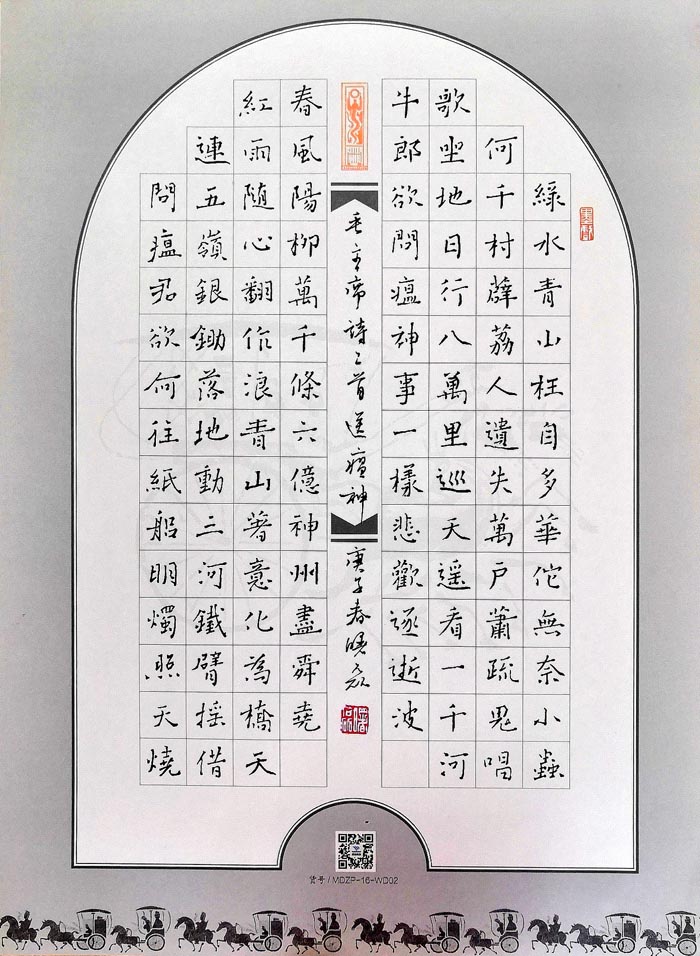 綠水青山枉自多華佗無奈小蟲
何千村薜荔人遺失萬戶蕭疏鬼唱
歌坐地日行八萬里巡天遥看一千河
牛郎欲問瘟神事一樣悲歡逐逝波
毛主席詩二首送瘟神
庚子春
春風陽柳萬千條六億神州盡舜堯
紅雨随心翻作浪青山著意化為橋天
連五嶺銀鋤落地動三河鐵臂摇借
問瘟君欲何往紙船明燭照天燒
货号/MDZP-16-WD02